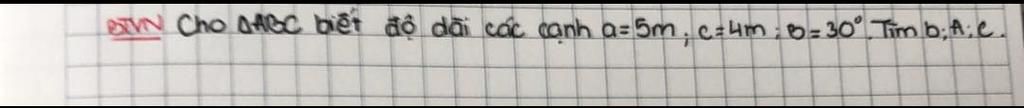 BTVN Cho ΔABC biết độ dài các cạnh a=5m; c=4m; B=30°. Tìm b; A; C.